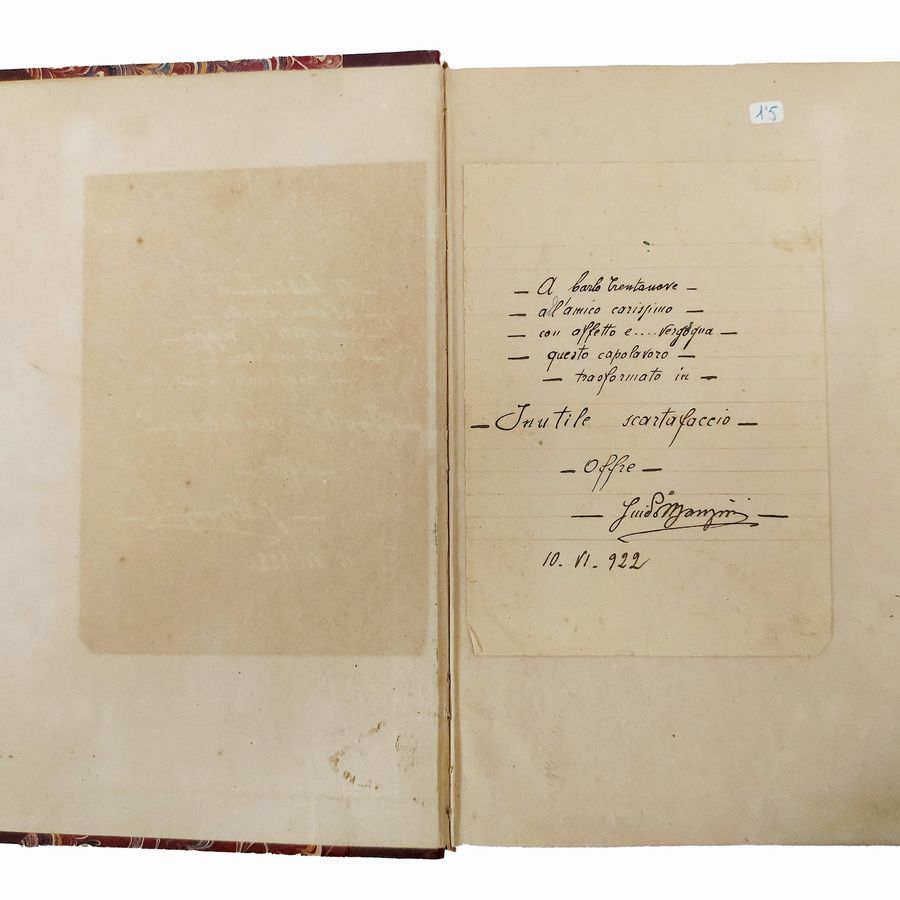 15
— A Carlo Trentanove —
— all'amico carissimo —
— con affetto e .... vergogna —
— questo capolavoro —
— trasformato in —
— Inutile scartafaccio —
— Offre —
— Guido Manzini —
10. VI. 922